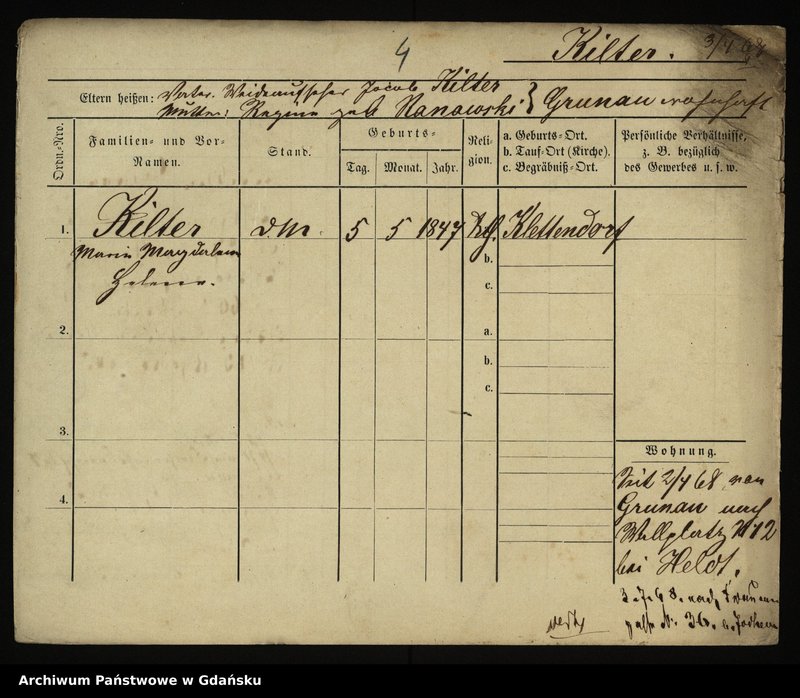 4
Kilter. 3/4 68
Eltern heißen: Vater. Weideaufseher Jacob Kilter
Mutter: Regine geb Nanowski } Grunau wohnhaft
Ordn.-Nro.
Familien- und Vor-Namen.
Stand.
Geburts-
Tag. Monat. Jahr.
Religion.
a. Geburts-Ort.
b. Tauf-Ort (Kirche).
c. Begräbniß-Ort.
Persönliche Verhältnisse,
z. B. bezüglich
des Gewerbes u. s. w.
1. Kilter 5 5 1847 Klettendorf
Marie Magdalena
Helene.
b.
c.
2. a.
b.
c.
3.
4.
Wohnung.
Seit 2/4 68 von
Grunau nach
Wallplatz N 12
bei Heldt.
3.7.68. nach
gasse Nr. 36.
Archiwum Państwowe w Gdańsku